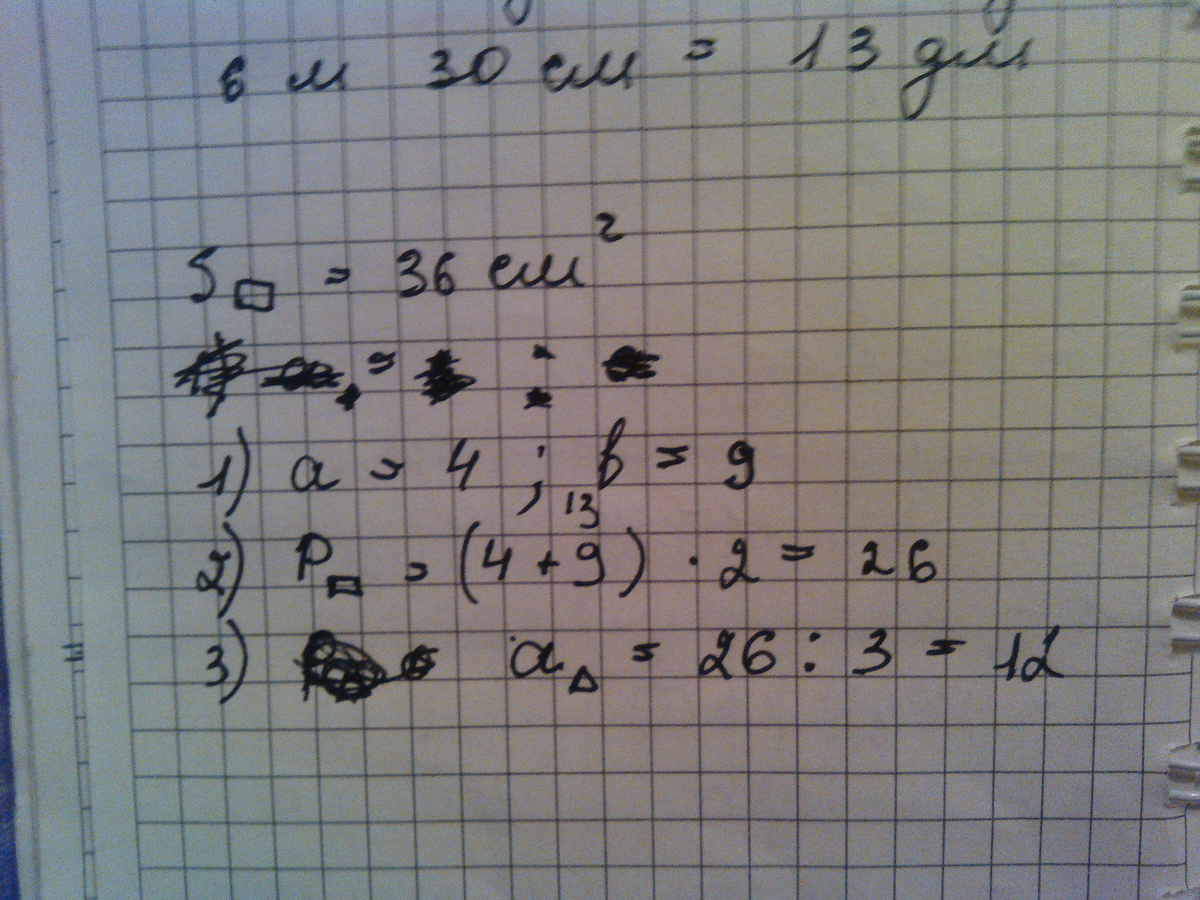 6 м 30 см = 13 дм
S□ = 36 см²
=  :
1) a = 4 ; b = 9
13
2) P□ = (4 + 9) · 2 = 26
3) a△ = 26 : 3 = 12